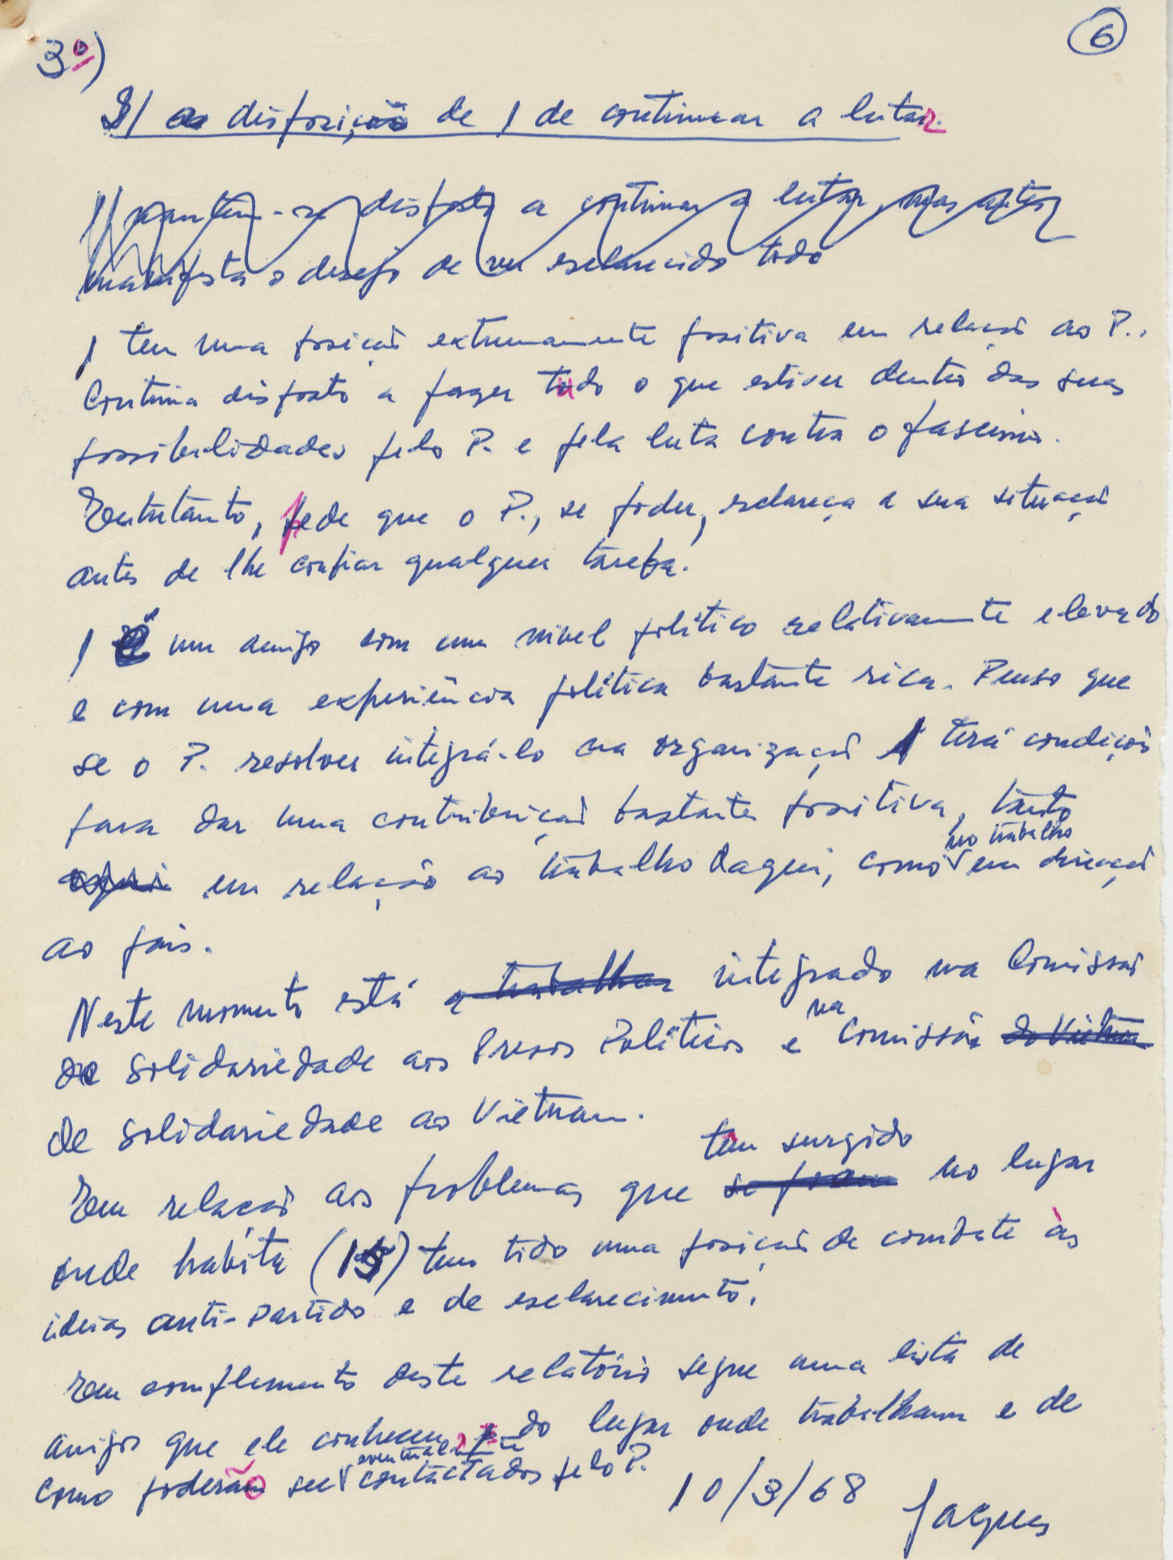 3º)
6
3/ a disposição de 1 de continuar a lutar.
1/ mantem-se disposto a continuar a lutar, mas antes
manifesta o desejo de ver esclarecido todo
1 tem uma posição extremamente positiva em relação ao P..
Continua disposto a fazer tudo o que estiver dentro das suas
possibilidades pelo P. e pela luta contra o fascismo.
Entretanto, pede que o P., se poder, esclareça a sua situação
antes de lhe confiar qualquer tarefa.
1 é um amigo com um nivel político relativamente elevado
e com uma experiência política bastante rica. Penso que
se o P. resolver integrá-lo na organização 1 terá condições
para dar uma contribuição bastante positiva, tanto
aqui em relação ao trabalho daqui, como no trabalho em direcção
ao país.
Neste momento está a trabalhar integrado na Comissão
de Solidariedade aos Presos Políticos e na Comissão do Vietnam
de Solidariedade ao Vietnam.
Em relação aos problemas que tem surgido no lugar
onde habita (15) tem tido uma posição de combate às
ideias anti-Partido e de esclarecimento.
Em complemento deste relatório segue uma lista de
amigos que ele conhece, do lugar onde trabalham e de
como poderão ser eventualmente contactados pelo P.
10/3/68 Jaques